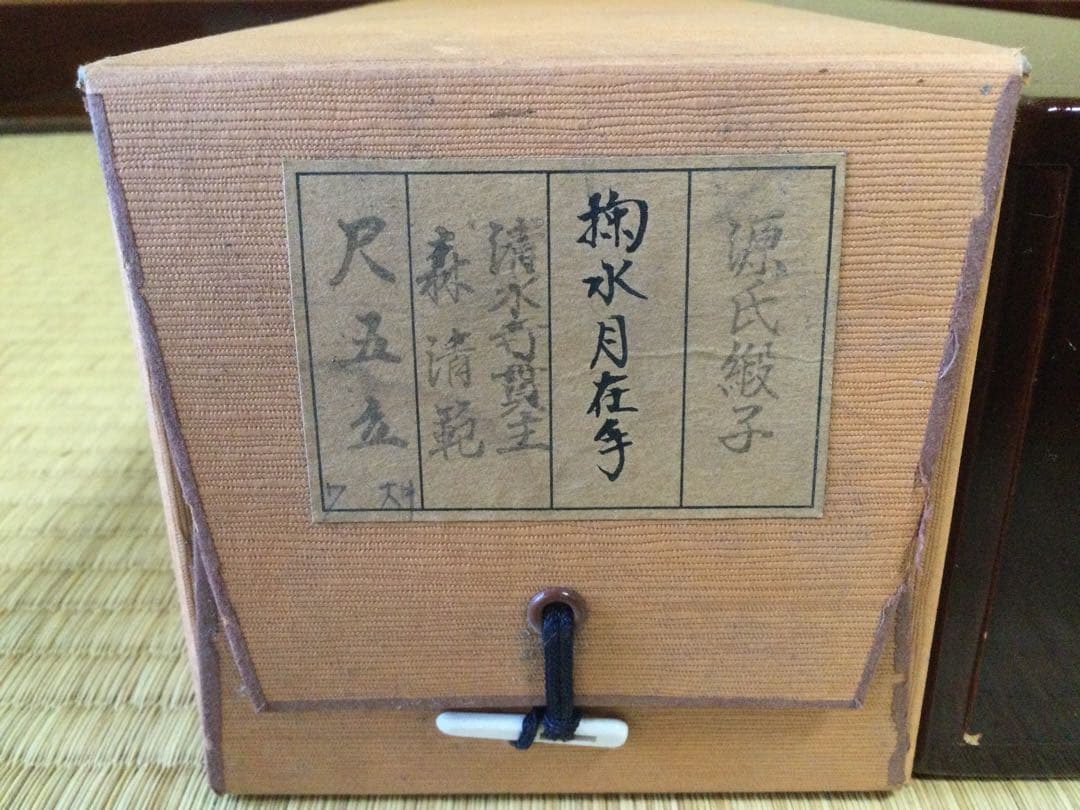 源氏緞子
掬水月在手
清水寺貫主
森清範
尺五立